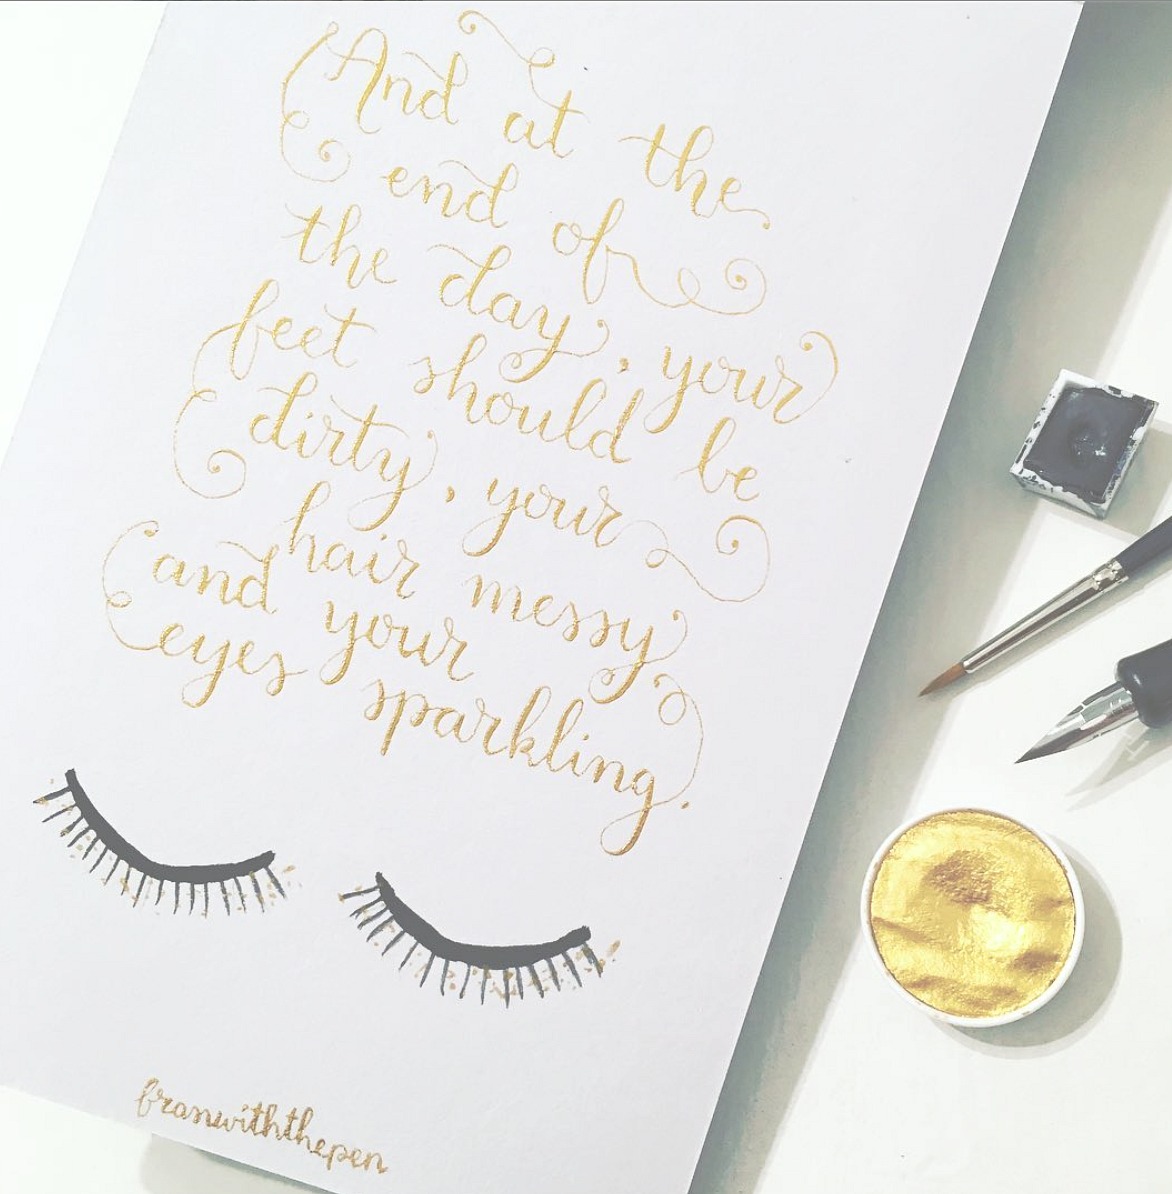 And at the
end of
the day, your
feet should be
dirty, your
hair messy
and your
eyes sparkling.
franwiththepen